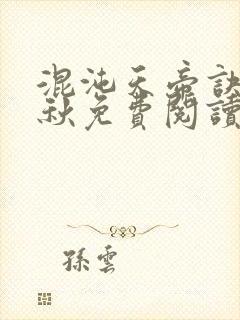 混沌天帝訣
秋免費閱讀
孫雲